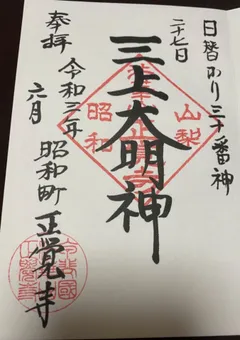 日替わり三十番神
二十七日
三上大明神
奉拝 令和三年 六月
昭和町 正覚寺
山梨
昭和